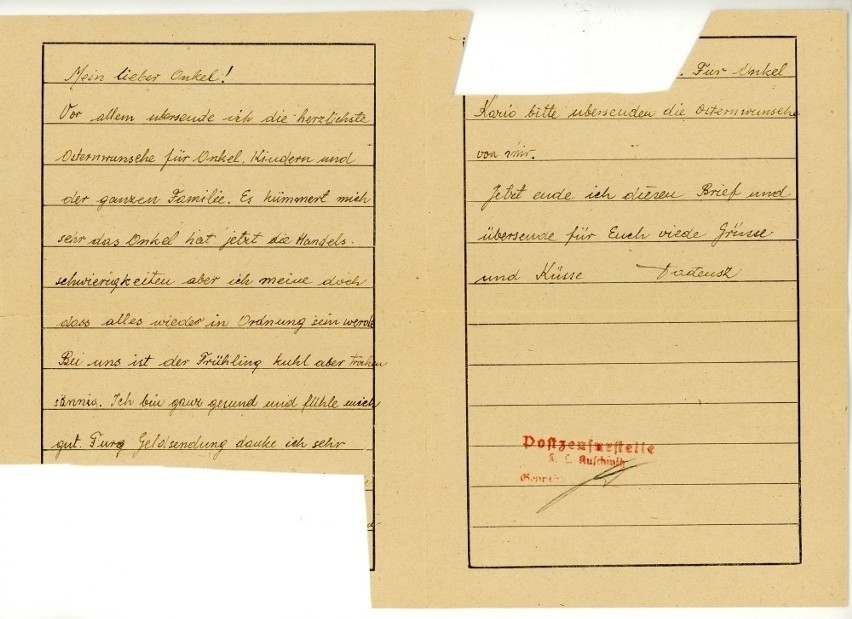 Mein lieber Onkel!
Vor allem ubersende ich die herzlichste
Osternwunsche für Onkel, Kindern und
der ganzen Familie. Es kümmert mich
sehr das Onkel hat jetzt die Handels-
schwierigkeiten aber ich meine doch
dass alles wieder in Ordnung sein werde
Bei uns ist der Frühling kuhl aber trocken
sännig. Ich bin ganz gesund und fühle mich
gut. Geldsendung danke ich sehr
. Fur Onkel
Kario bitte ubersenden die Osternwunsche
von mir.
Jetzt ende ich diesen Brief und
übersende für Euch viede Grüsse
und Küsse Tadeusz
Postzensurstelle
K. L. Auschwitz